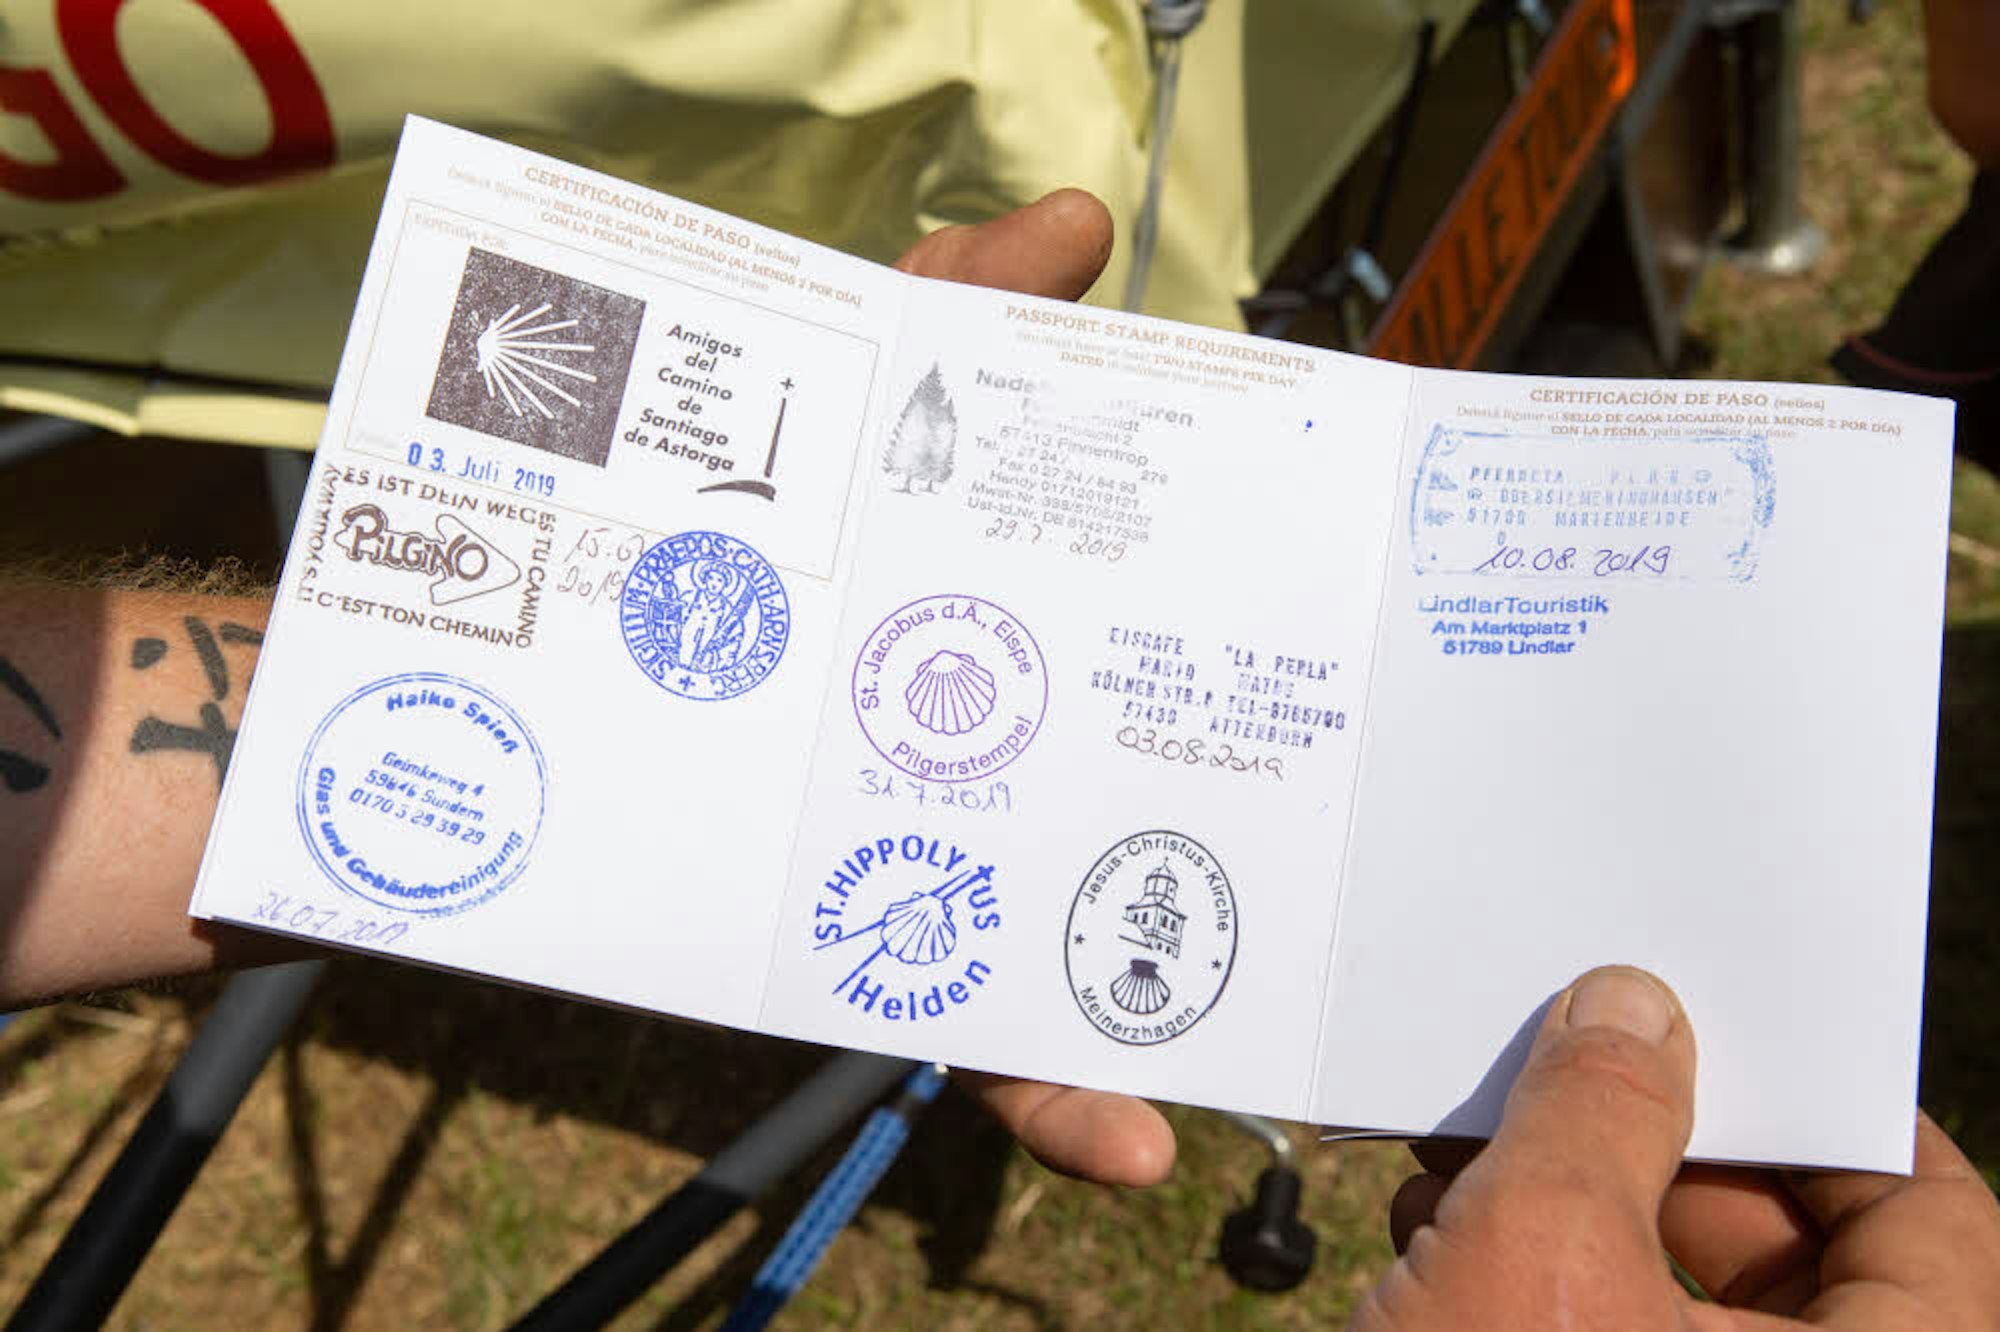 GO
CERTIFICACIÓN DE PASO (sellos)
Deberá figurar el SELLO DE CADA LOCALIDAD (AL MENOS 2 POR DÍA)
CON LA FECHA, para acreditar su paso
EXPEDIDA POR:
Amigos
del
Camino
de
Santiago
de Astorga
03. Juli 2019
ES IST DEIN WEG
ES TU CAMINO
C'EST TON CHEMIN
IT'S YOUR WAY
PILGINO
15.07
2019
SIGILLUM·PRAEPOS·CATH·ARNSBERG
Haiko Spieß
Geimkeweg 4
59846 Sundern
0170 5 29 39 29
Glas und Gebäudereinigung
26.07.2019
PASSPORT STAMP REQUIREMENTS
You must have at least TWO STAMPS PER DAY
DATED
57413 Finnentrop
Tel.
Fax 0 27 24 / 84 93
Handy 01712019121
Mwst-Nr. 338/5706/2107
Ust-Id.Nr. DE 814217538
29.7. 2019
St. Jacobus d.Ä., Elspe
Pilgerstempel
31.7.2019
EISCAFE "LA PERLA"
MARIO
KÖLNER STR.
57439 ATTENDORN
03.08.2019
ST. HIPPOLYTUS
Helden
Jesus-Christus-Kirche
Meinerzhagen
CERTIFICACIÓN DE PASO (sellos)
Deberá figurar el SELLO DE CADA LOCALIDAD (AL MENOS 2 POR DÍA)
CON LA FECHA, para acreditar su paso
51709 MARIENHEIDE
10.08.2019
LindlarTouristik
Am Marktplatz 1
51789 Lindlar